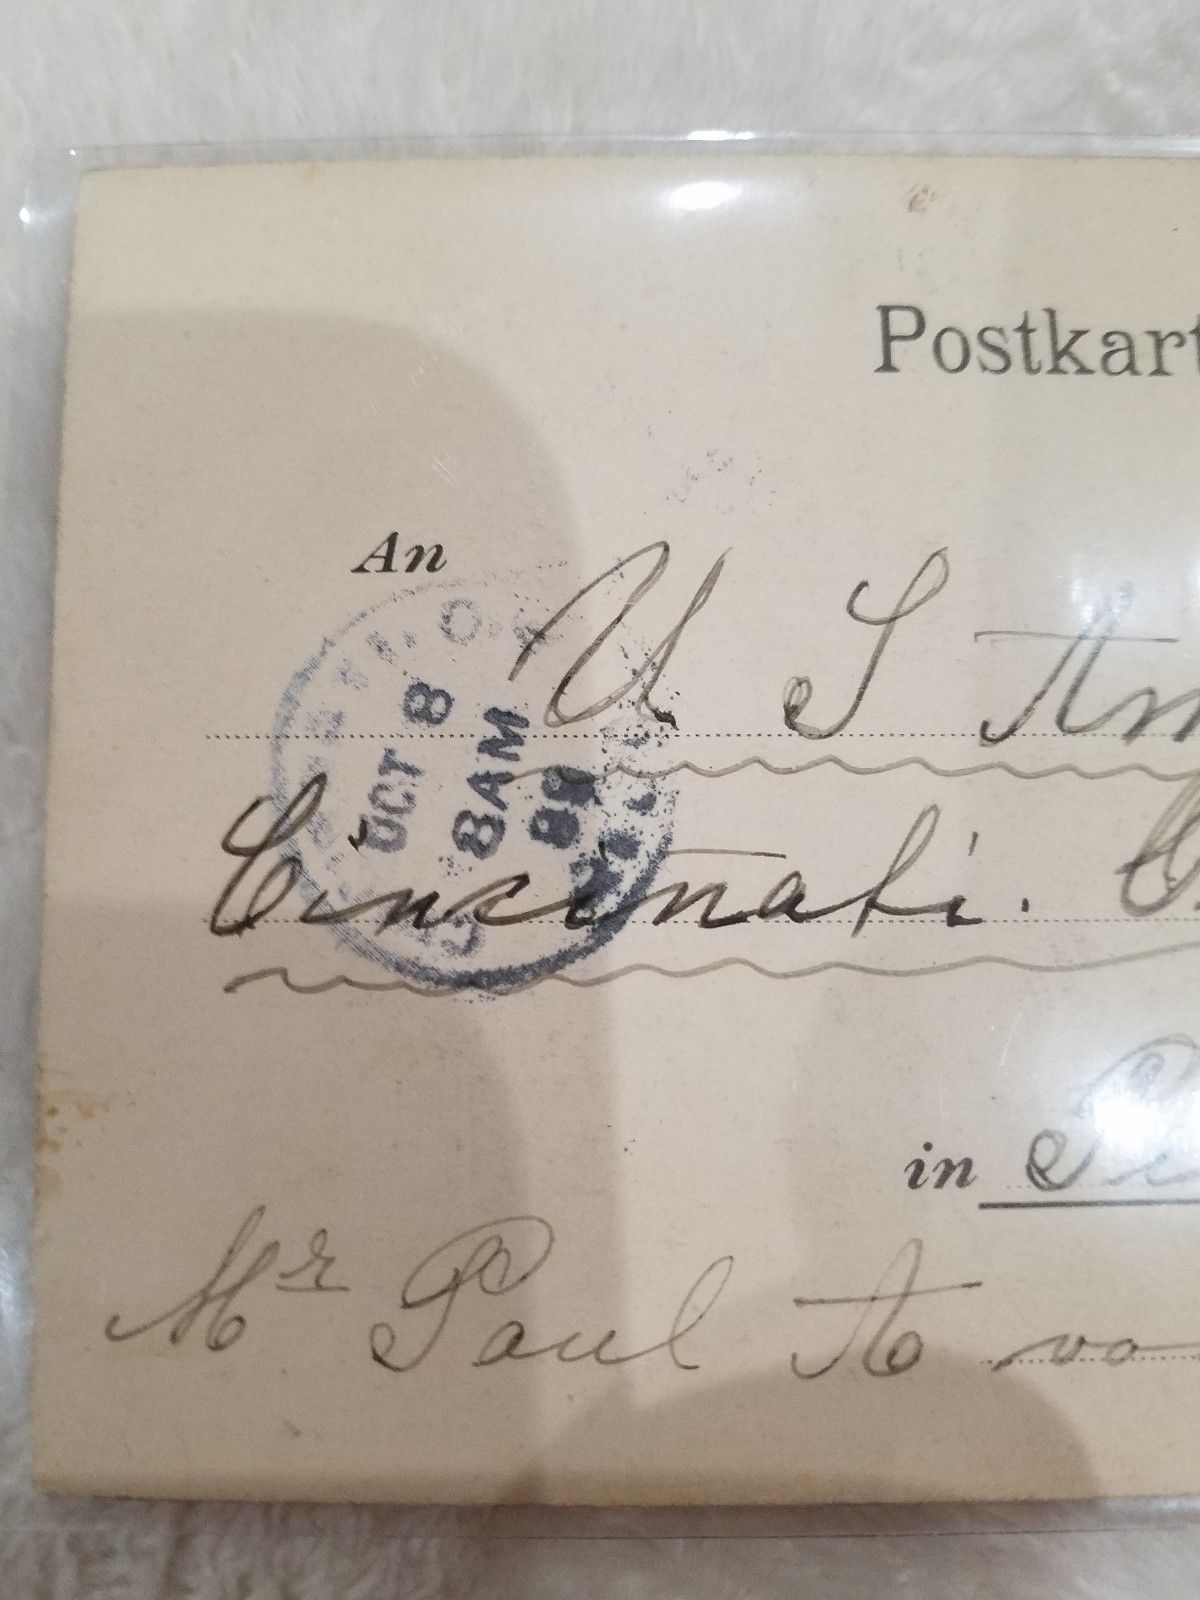 Postkart
An
U S Am
OCT 8
8 AM
99
Cincinati. O
in
Mr Paul A vo